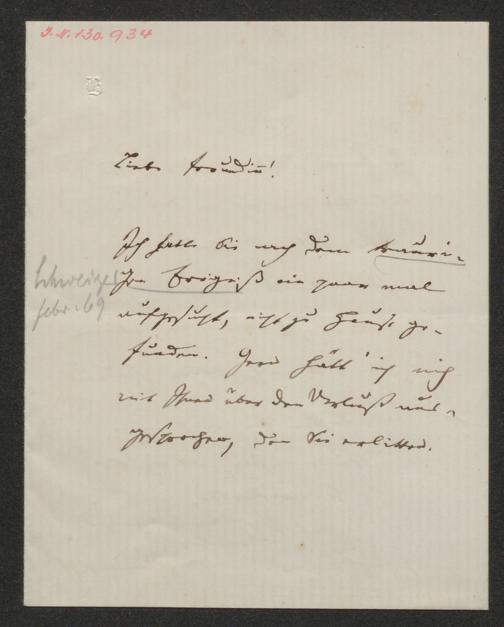 I.N. 130.934
Liebe Freundin!
Ich hatte Sie nach dem trauri-
gen Ereigniß ein paar mal
aufgesucht, nicht zu Hause ge-
funden. Gern hätt' ich mich
mit Ihnen über den Verlust aus-
gesprochen, den Sie erlitten.
febr. 69